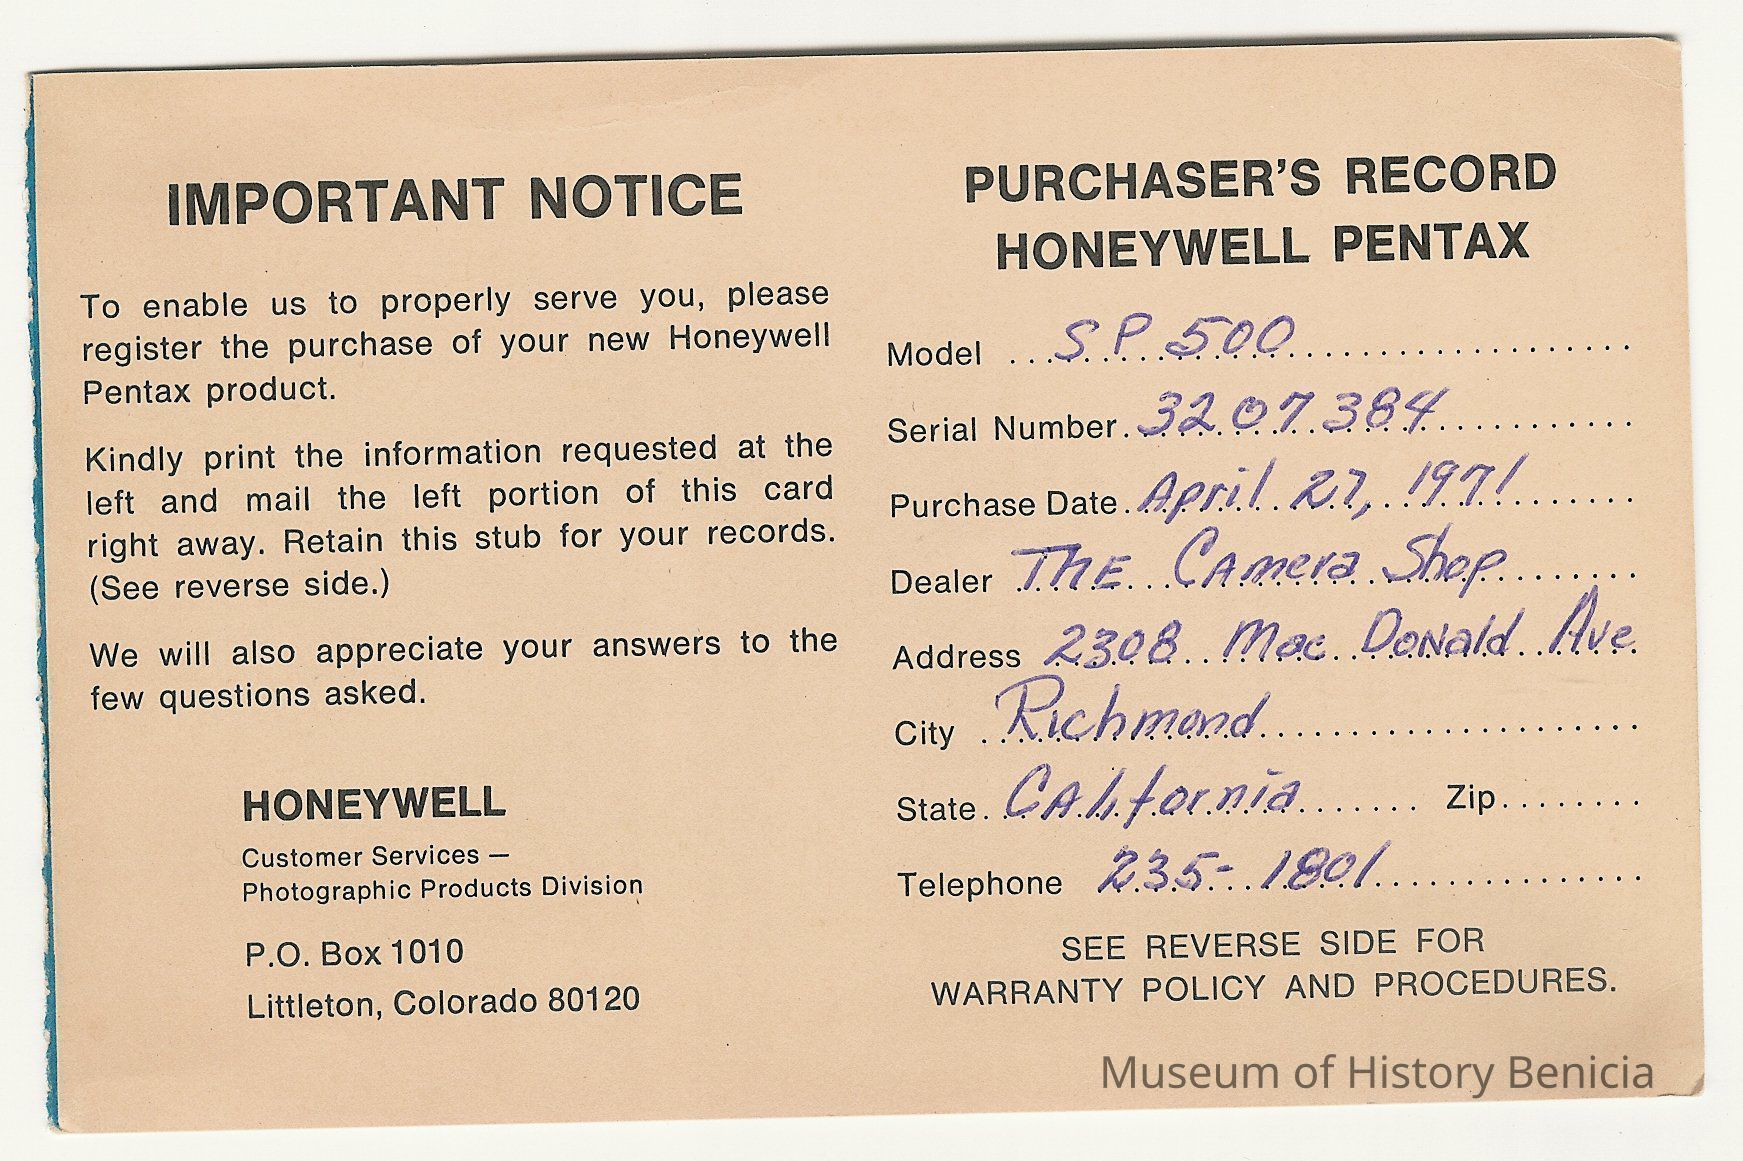 IMPORTANT NOTICE
To enable us to properly serve you, please
register the purchase of your new Honeywell
Pentax product.
Kindly print the information requested at the
left and mail the left portion of this card
right away. Retain this stub for your records.
(See reverse side.)
We will also appreciate your answers to the
few questions asked.
HONEYWELL
Customer Services –
Photographic Products Division
P.O. Box 1010
Littleton, Colorado 80120
PURCHASER'S RECORD
HONEYWELL PENTAX
Model SP 500
Serial Number 3207384
Purchase Date April 27, 1971
Dealer The Camera Shop
Address 2308 Mac Donald Ave
City Richmond
State California Zip
Telephone 235-1801
SEE REVERSE SIDE FOR
WARRANTY POLICY AND PROCEDURES.
Museum of History Benicia